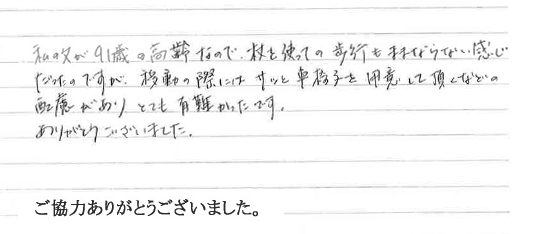 私の父が91歳の高齢なので、杖を使っての歩行もままならない感じ
だったのですが、移動の際にはサッと車椅子を用意して頂くなどの
配慮がありとても有難かったです。
ありがとうございました。
ご協力ありがとうございました。